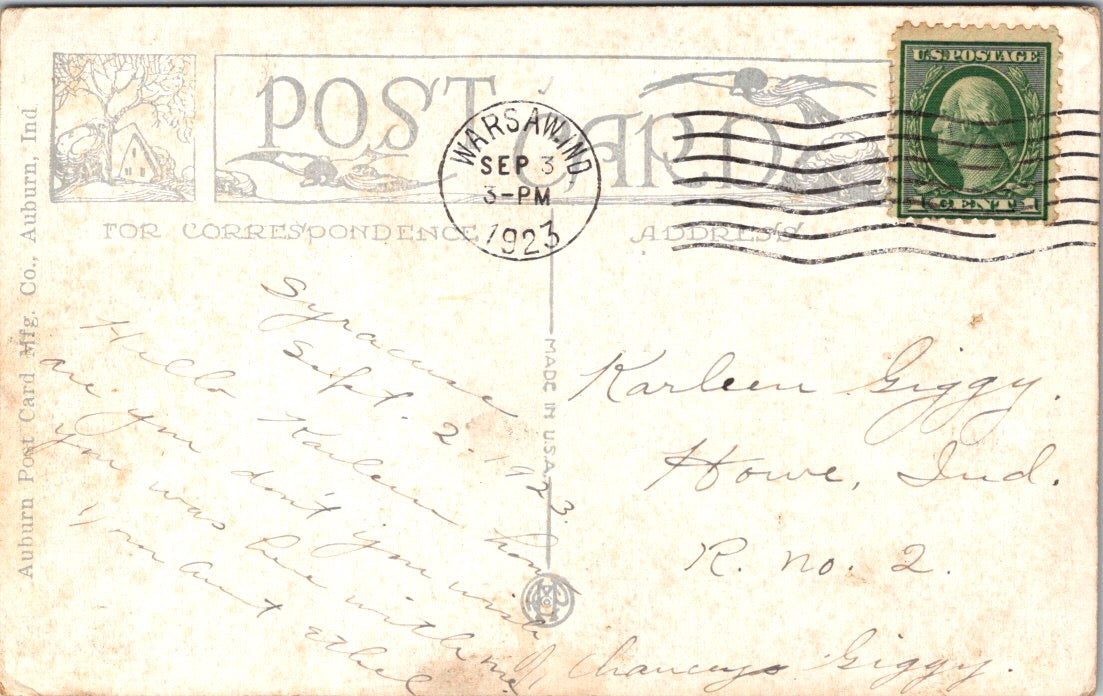 POST CARD
FOR CORRESPONDENCE
ADDRESS
Auburn Post Card Mfg. Co., Auburn, Ind
MADE IN U.S.A.
WARSAW, IND
SEP 3
3-PM
1923
U.S. POSTAGE
1 CENT 1
Syracuse
Sept. 2. 1923.
Hello Karleen how
are you don't you wish
you was here with me
Your Aunt Ethel
Karleen Giggy.
Howe, Ind.
R. no. 2.
% Chancey Giggy.